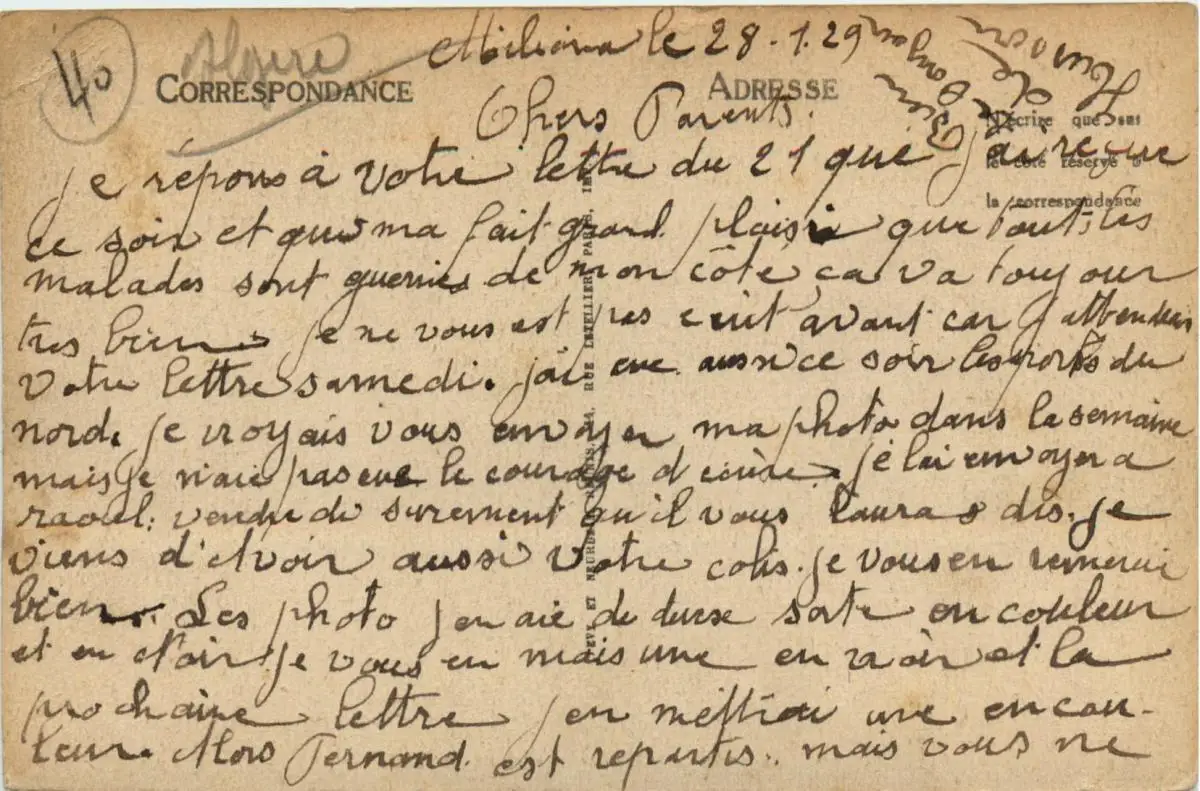 40
Miliana le 28-1.29
CORRESPONDANCE
ADRESSE
N'écrire que sur
le côté réservé à
la correspondance
Chers Parents.
je répons à votre lettre du 21 que j'ai reçue
ce soir et que ma fait grand plaisir que tout les
malades sont gueries de mon côte ça va toujour
tres bien. je ne vous est pas ecrit avant car j'attendais
votre lettre samedi. j'ai eue aussi ce soir les ports du
nord. je croyais vous envoyer ma photo dans la semaine
mais je n'aie pas eue le courage d'ecrire. je lai envoyer a
raoul. vendredi surement qu'il vous laura dis. je
viens d'avoir aussi votre colis. je vous en remerci
bien. Les photo j'en aie de deuxe sorte en couleur
et en noir je vous en mais une en noir et la
prochaine lettre j'en mettrai une en cou-
leur. Alors Fernand est repartis. mais vous ne